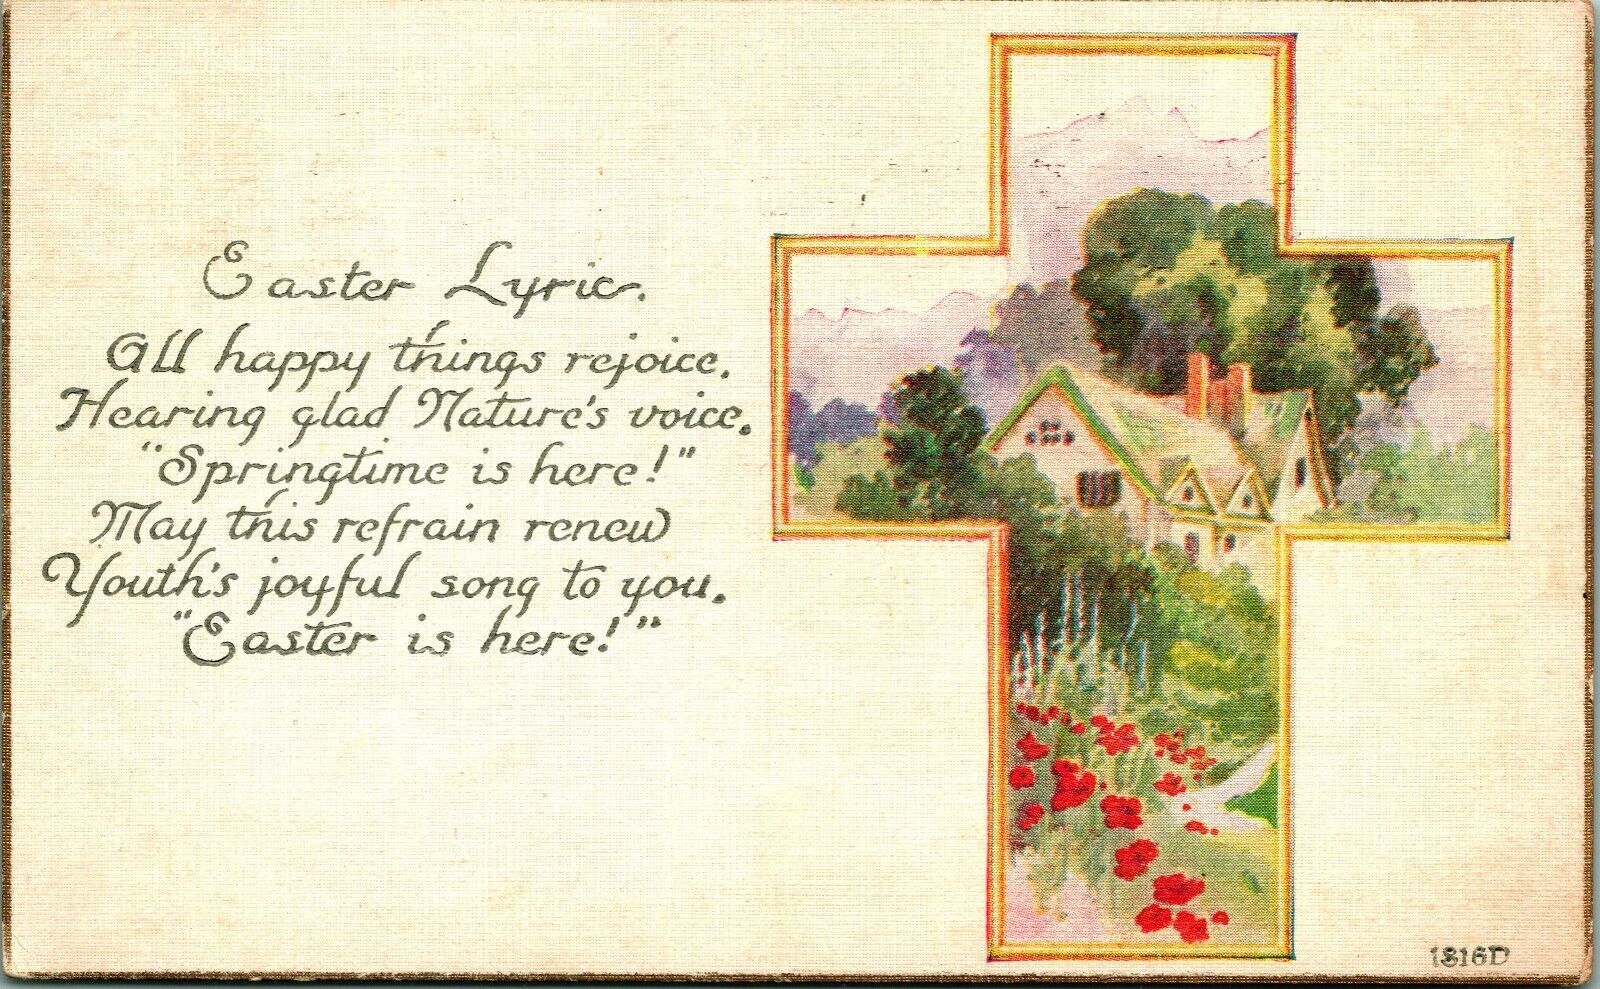 Easter Lyric.
All happy things rejoice.
Hearing glad Nature's voice.
"Springtime is here!"
May this refrain renew
Youth's joyful song to you.
"Easter is here!"
1816D